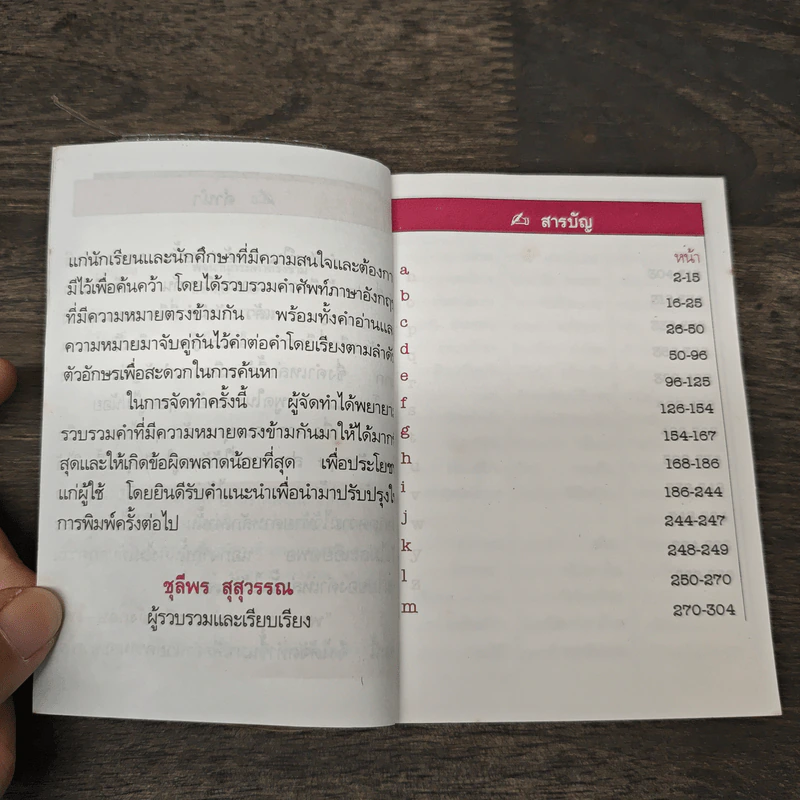 แก่นักเรียนและนักศึกษาที่มีความสนใจและต้องกา
มีไว้เพื่อค้นคว้า โดยได้รวบรวมคำศัพท์ภาษาอังกฤษ
ที่มีความหมายตรงข้ามกัน พร้อมทั้งคำอ่านและ
ความหมายมาจับคู่กันไว้คำต่อคำโดยเรียงตามลำดั
ตัวอักษรเพื่อสะดวกในการค้นหา
ในการจัดทำครั้งนี้ ผู้จัดทำได้พยายา
รวบรวมคำที่มีความหมายตรงข้ามกันมาให้ได้มาก
สุดและให้เกิดข้อผิดพลาดน้อยที่สุด เพื่อประโยช
แก่ผู้ใช้ โดยยินดีรับคำแนะนำเพื่อนำมาปรับปรุงใ
การพิมพ์ครั้งต่อไป
ชุลีพร สุสุวรรณ
ผู้รวบรวมและเรียบเรียง
สารบัญ
หน้า
a 2-15
b 16-25
c 26-50
d 50-96
e 96-125
f 126-154
g 154-167
h 168-186
i 186-244
j 244-247
k 248-249
l 250-270
m 270-304